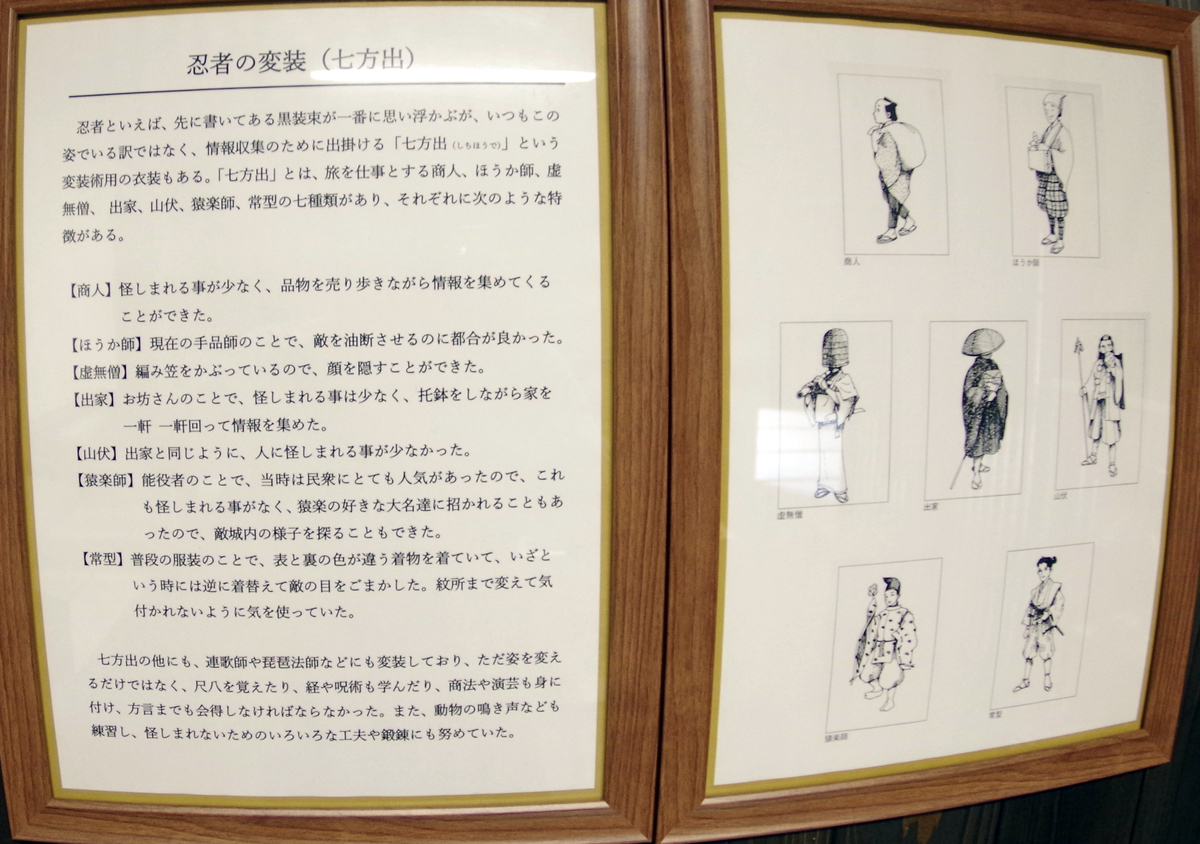 忍者の変装（七方出）
忍者といえば、先に書いてある黒装束が一番に思い浮かぶが、いつもこの
姿でいる訳ではなく、情報収集のために出掛ける「七方出（しちほうで）」という
変装術用の衣装もある。「七方出」とは、旅を仕事とする商人、ほうか師、虚
無僧、 出家、山伏、猿楽師、常型の七種類があり、それぞれに次のような特
徴がある。
【商人】怪しまれる事が少なく、品物を売り歩きながら情報を集めてくる
ことができた。
【ほうか師】現在の手品師のことで、敵を油断させるのに都合が良かった。
【虚無僧】編み笠をかぶっているので、顔を隠すことができた。
【出家】お坊さんのことで、怪しまれる事は少なく、托鉢をしながら家を
一軒 一軒回って情報を集めた。
【山伏】出家と同じように、人に怪しまれる事が少なかった。
【猿楽師】能役者のことで、当時は民衆にとても人気があったので、これ
も怪しまれる事がなく、猿楽の好きな大名達に招かれることもあ
ったので、敵城内の様子を探ることもできた。
【常型】普段の服装のことで、表と裏の色が違う着物を着ていて、いざと
いう時には逆に着替えて敵の目をごまかした。紋所まで変えて気
付かれないように気を使っていた。
七方出の他にも、連歌師や琵琶法師などにも変装しており、ただ姿を変え
るだけではなく、尺八を覚えたり、経や呪術も学んだり、商法や演芸も身に
付け、方言までも会得しなければならなかった。また、動物の鳴き声なども
練習し、怪しまれないためのいろいろな工夫や鍛錬にも努めていた。
商人
ほうか師
虚無僧
出家
山伏
猿楽師
常型